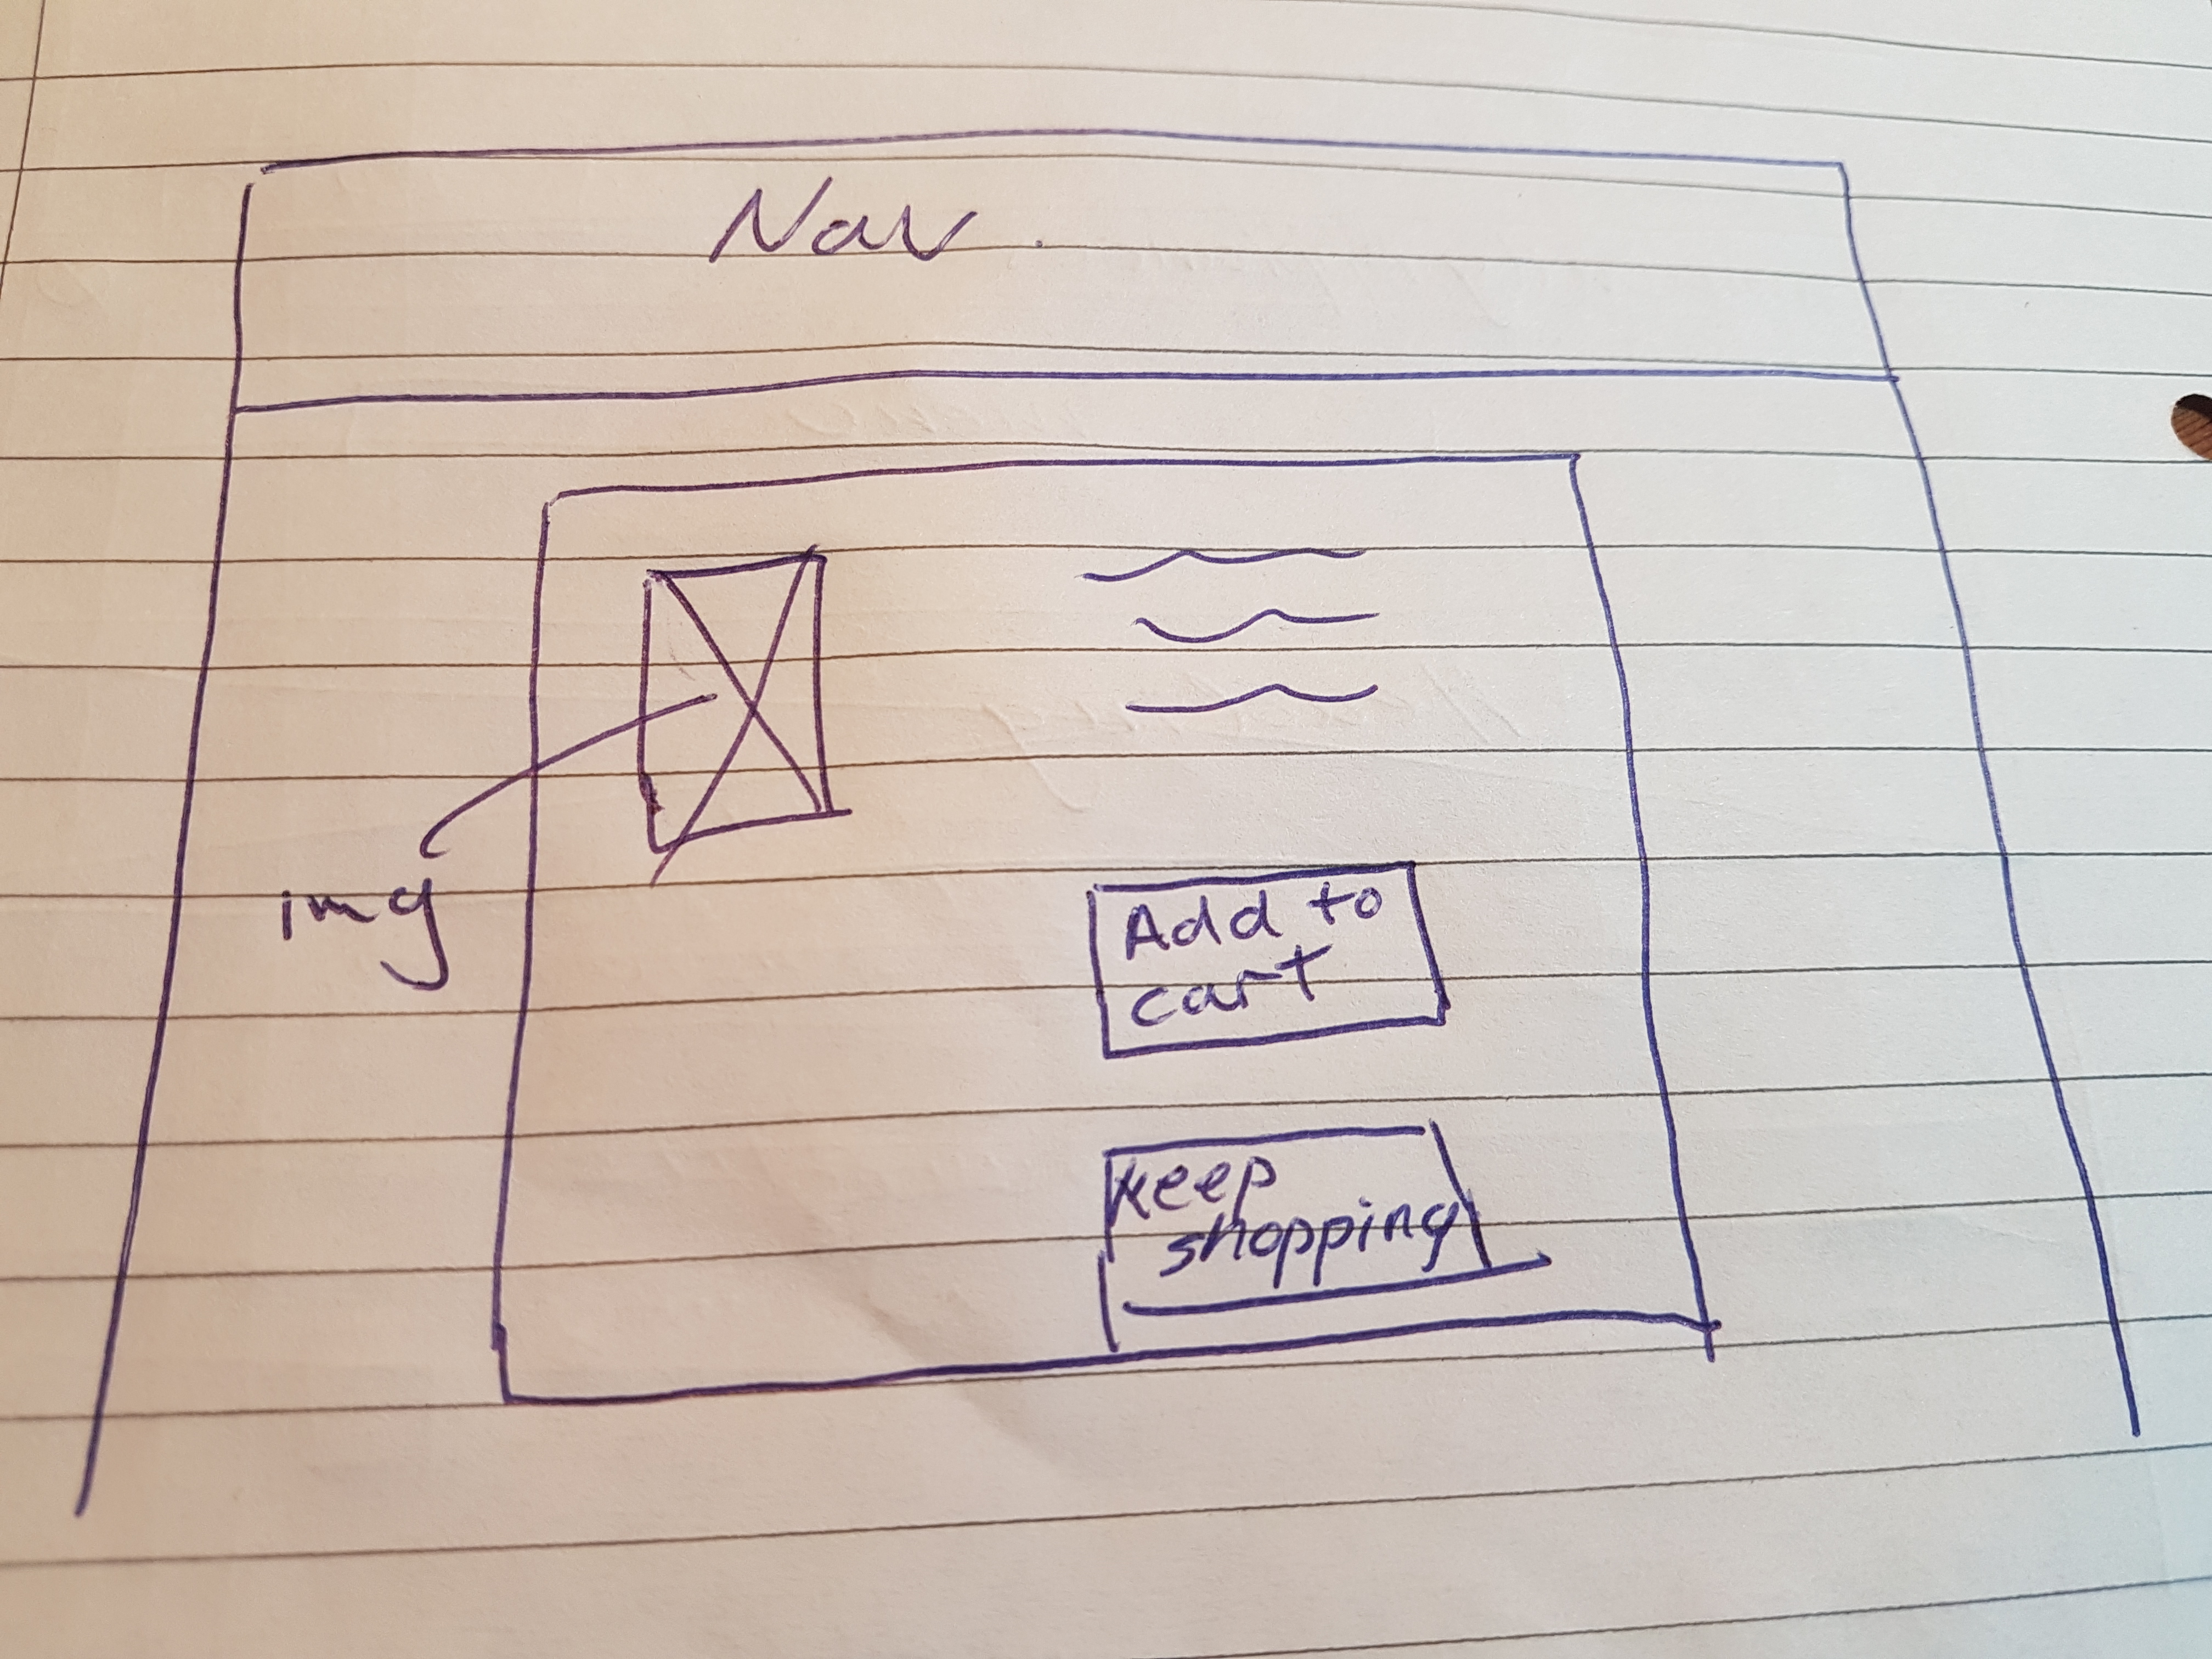 Nav.
img
Add to
cart
keep
shopping